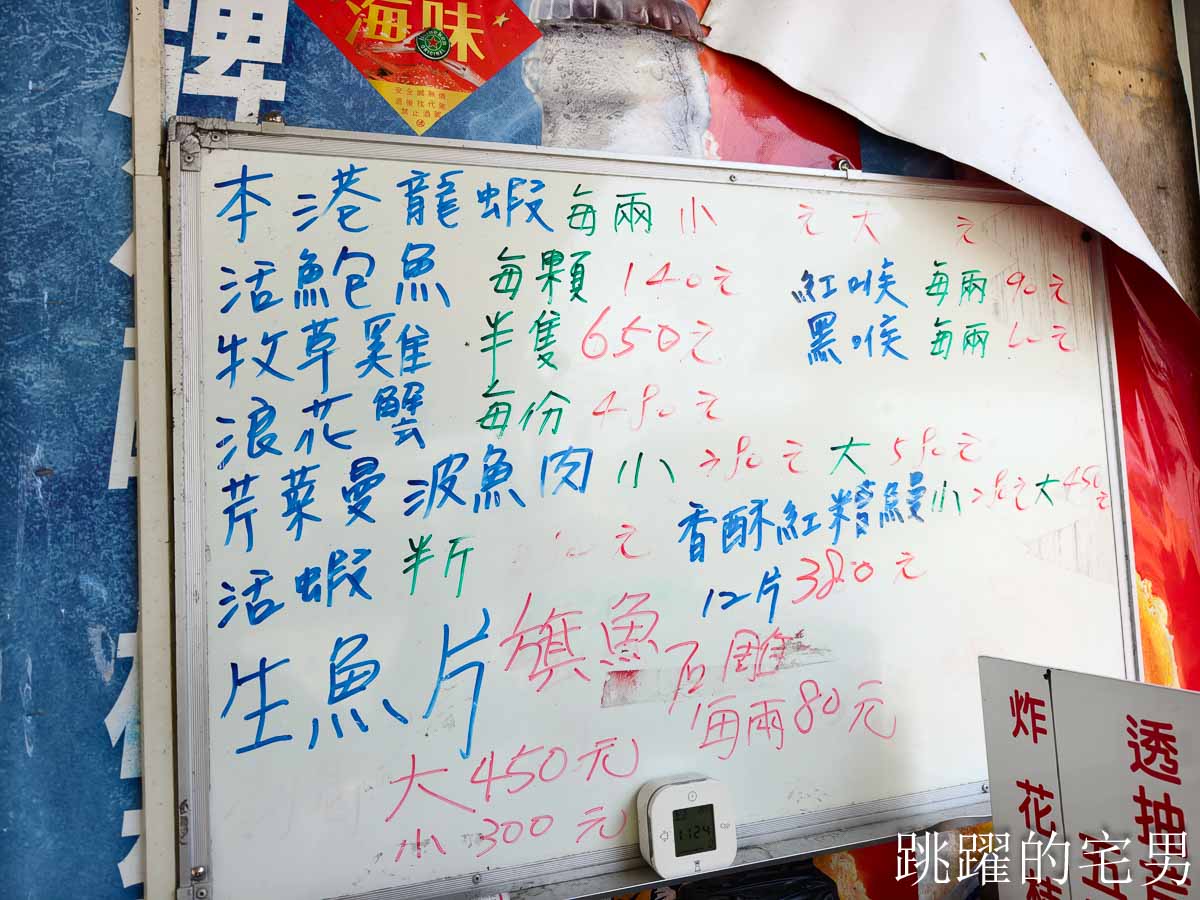 牌
海味
安全鍋無憂
酒後找代駕
禁止酒駕
本港龍蝦 每兩 小 元 大 元
活鮑魚 每顆 140元
紅喉 每兩 90元
牧草雞 半隻 650元
黑喉 每兩 60元
浪花蟹 每份 480元
芹菜曼波魚肉 小 280元 大 580元
香酥紅糟鰻 小 280元 大 450元
活蝦 半斤 元
12片 380元
生魚片 旗魚
石雕
每兩80元
大 450元
小 300元
1124
炸花枝
透抽
跳躍的宅男